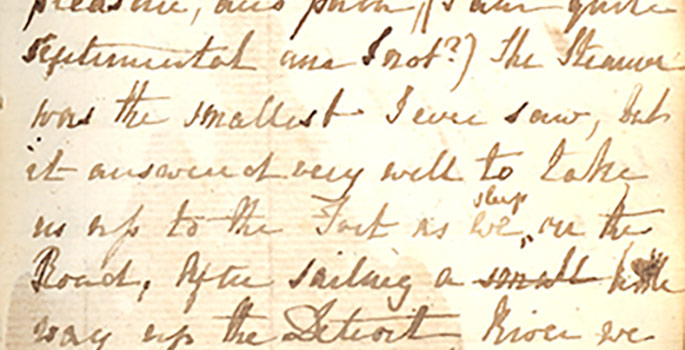 pleasure, and pain, (I am quite
septimental am I not?) The Steamer
was the smallest I ever saw, but
it answered very well to take
us up to the Fort as we sleep on the
Road, After sailing a small little
way up the Detroit River we